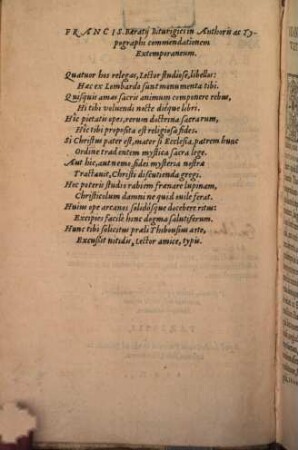 FRANCIS. Baratij Biturigici in Authoris ac Ty-
pographi commendationem
Extemporaneum.
Quatuor hos relegas, Lector studiose, libellos:
Hac ex Lombardo sunt monumenta tibi.
Quisquis amas sacris animum componere rebus,
Hi tibi voluendi nocte dieque libri.
Hic pietatis opes, rerum doctrina sacrarum,
Hic tibi proposita est religiosa fides.
Si Christus pater est, mater si Ecclesia, patrem hunc
Ordine tradentem mystica sacra lege.
Aut hic, aut nemo fidei mysteria nostra
Tractauit, Christi discutienda gregi.
Hoc poteris studio rabiem frænare lupinam,
Christicolum damni ne quid ouile ferat.
Huius ope arcanos solidósque docebere ritus:
Excipies facilè hunc dogma salutiferum.
Hunc tibi solicitus præli Thiboustius arte,
Excussit nitidis, Lector amice, typis.